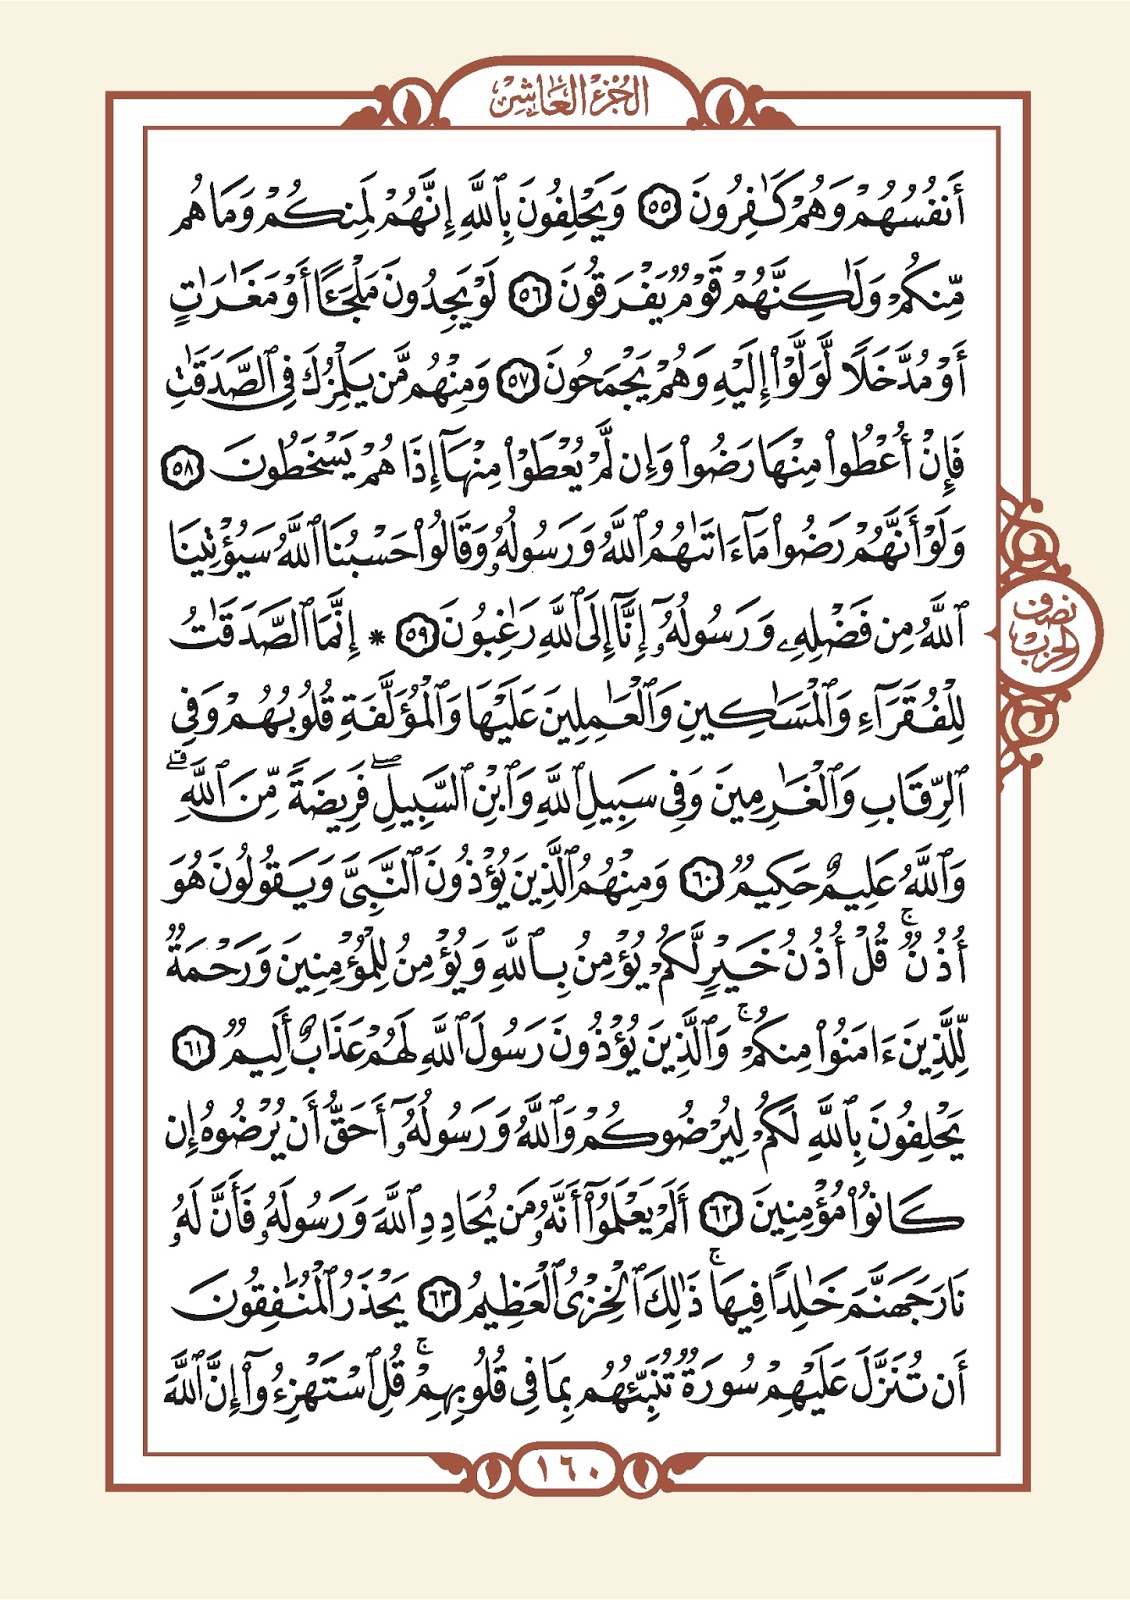 الجزء العاشر
أَنفُسُهُمْ وَهُمْ كَٰفِرُونَ ٥٥ وَيَحْلِفُونَ بِٱللَّهِ إِنَّهُمْ لَمِنكُمْ وَمَا هُم
مِّنكُمْ وَلَٰكِنَّهُمْ قَوْمٌ يَفْرَقُونَ ٥٦ لَوْ يَجِدُونَ مَلْجَـًٔا أَوْ مَغَٰرَٰتٍ
أَوْ مُدَّخَلًا لَّوَلَّوْا۟ إِلَيْهِ وَهُمْ يَجْمَحُونَ ٥٧ وَمِنْهُم مَّن يَلْمِزُكَ فِى ٱلصَّدَقَٰتِ
فَإِنْ أُعْطُوا۟ مِنْهَا رَضُوا۟ وَإِن لَّمْ يُعْطَوْا۟ مِنْهَآ إِذَا هُمْ يَسْخَطُونَ ٥٨
وَلَوْ أَنَّهُمْ رَضُوا۟ مَآ ءَاتَىٰهُمُ ٱللَّهُ وَرَسُولُهُۥ وَقَالُوا۟ حَسْبُنَا ٱللَّهُ سَيُؤْتِينَا
ٱللَّهُ مِن فَضْلِهِۦ وَرَسُولُهُۥٓ إِنَّآ إِلَى ٱللَّهِ رَٰغِبُونَ ٥٩ * إِنَّمَا ٱلصَّدَقَٰتُ
لِلْفُقَرَآءِ وَٱلْمَسَٰكِينِ وَٱلْعَٰمِلِينَ عَلَيْهَا وَٱلْمُؤَلَّفَةِ قُلُوبُهُمْ وَفِى
ٱلرِّقَابِ وَٱلْغَٰرِمِينَ وَفِى سَبِيلِ ٱللَّهِ وَٱبْنِ ٱلسَّبِيلِ ۖ فَرِيضَةً مِّنَ ٱللَّهِ ۗ
وَٱللَّهُ عَلِيمٌ حَكِيمٌ ٦٠ وَمِنْهُمُ ٱلَّذِينَ يُؤْذُونَ ٱلنَّبِىَّ وَيَقُولُونَ هُوَ
أُذُنٌ ۚ قُلْ أُذُنُ خَيْرٍ لَّكُمْ يُؤْمِنُ بِٱللَّهِ وَيُؤْمِنُ لِلْمُؤْمِنِينَ وَرَحْمَةٌ
لِّلَّذِينَ ءَامَنُوا۟ مِنكُمْ ۚ وَٱلَّذِينَ يُؤْذُونَ رَسُولَ ٱللَّهِ لَهُمْ عَذَابٌ أَلِيمٌ ٦١
يَحْلِفُونَ بِٱللَّهِ لَكُمْ لِيُرْضُوكُمْ وَٱللَّهُ وَرَسُولُهُۥٓ أَحَقُّ أَن يُرْضُوهُ إِن
كَانُوا۟ مُؤْمِنِينَ ٦٢ أَلَمْ يَعْلَمُوٓا۟ أَنَّهُۥ مَن يُحَادِدِ ٱللَّهَ وَرَسُولَهُۥ فَأَنَّ لَهُۥ
نَارَ جَهَنَّمَ خَٰلِدًا فِيهَا ۚ ذَٰلِكَ ٱلْخِزْىُ ٱلْعَظِيمُ ٦٣ يَحْذَرُ ٱلْمُنَٰفِقُونَ
أَن تُنَزَّلَ عَلَيْهِمْ سُورَةٌ تُنَبِّئُهُم بِمَا فِى قُلُوبِهِمْ ۚ قُلِ ٱسْتَهْزِءُوٓا۟ إِنَّ ٱللَّهَ
نصف
الحزب
١٦٠